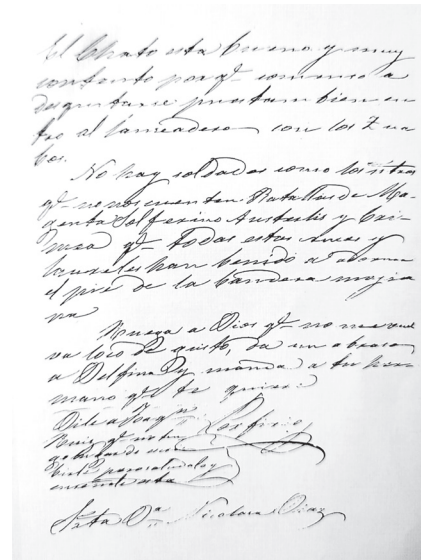 El Chato esta bueno y muy
contento por qe. comenso a
desquitarse pues tambien en
tro al lanceadero con los Zua
bos.
No hay soldados como los ntros
qe. no nos cuenten Batallas de Mga-
genta Solferino Austerlis y Cri-
mea qe. todas estas cruces y
laureles han benido a adornar
el pie de la bandera mejica
na
Ruega a Dios qe. no me vuel
va loco de gusto, da un abraso
a Delfina y manda a tu her
mano qe. te quiere:
Dile a Joaqn. Porfirio
Ruiz qe. no
enseñale esta
Srta Da. Nicolasa Diaz